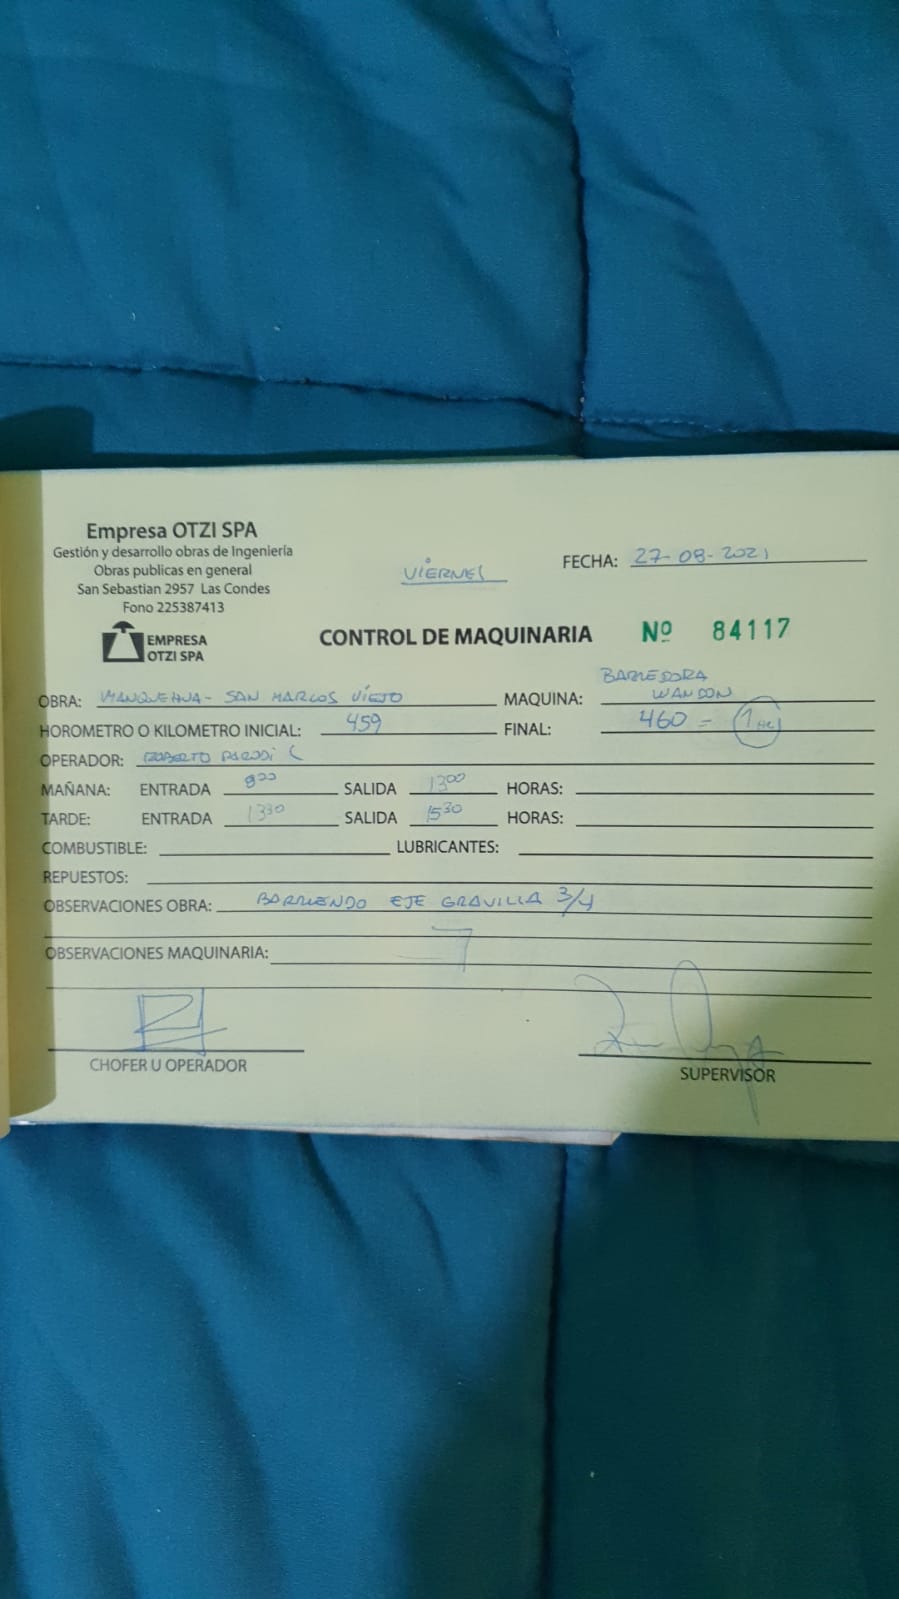 Empresa OTZI SPA
Gestión y desarrollo obras de Ingeniería
Obras publicas en general
San Sebastian 2957 Las Condes
Fono 225387413
EMPRESA
OTZI SPA
VIERNES
FECHA: 27-08-2021
CONTROL DE MAQUINARIA
Nº 84117
OBRA: MANQUEHUA - SAN MARCOS VIEJO
MAQUINA: BARREDORA
HOROMETRO O KILOMETRO INICIAL: 459
FINAL: 460 = 1
OPERADOR: ROBERTO PARODI C
MAÑANA: ENTRADA 8 00 SALIDA 13 00 HORAS:
TARDE: ENTRADA 13 30 SALIDA 15 30 HORAS:
COMBUSTIBLE: LUBRICANTES:
REPUESTOS:
OBSERVACIONES OBRA: BARRIENDO EJE GRAVILLA 3/4
OBSERVACIONES MAQUINARIA:
CHOFER U OPERADOR
SUPERVISOR